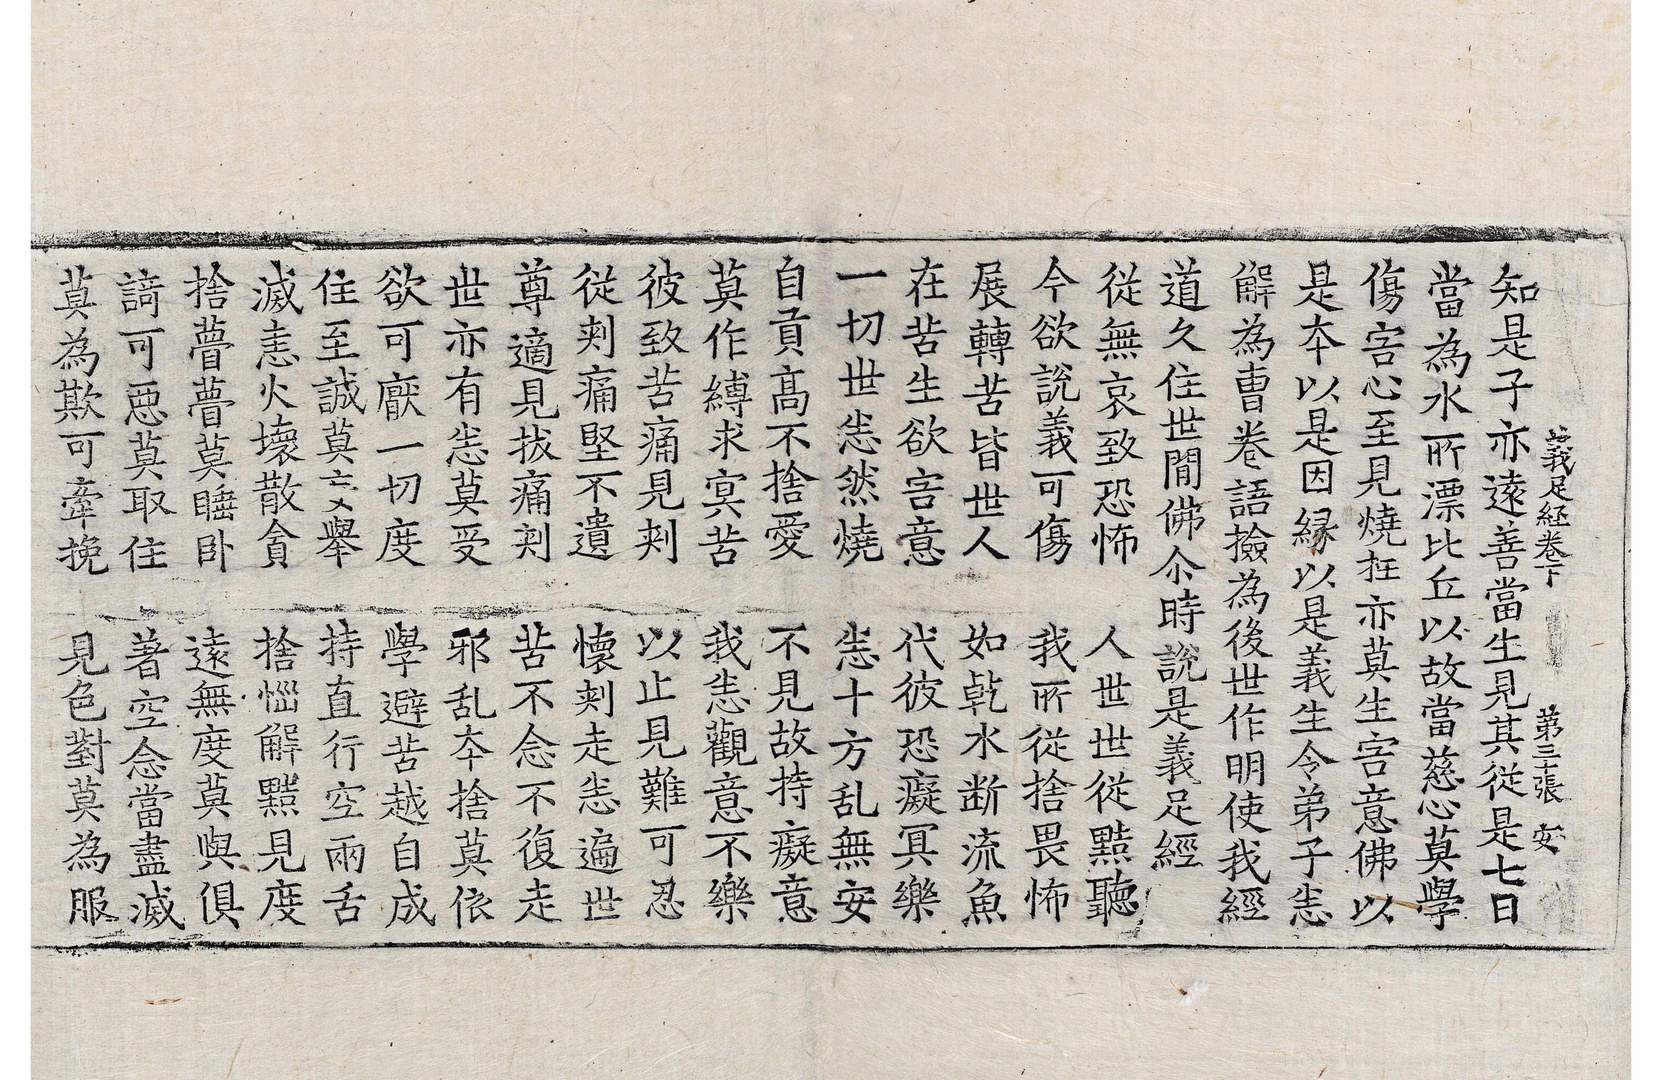 義足經卷下 第三十張 安
知是子亦遠善當生見其從是七日
當為水所漂比丘以故當慈心莫學
傷害心至見燒狂亦莫生害意佛以
是夲以是因縁以是義生令弟子悉
解為曺卷語撿為後世作明使我經
道久住世間佛尒時說是義足經
從無哀致恐怖 人世世從黠聽
今欲說義可傷 我所從捨畏怖
展轉苦皆世人 如乾水断流魚
在苦生欲害意 代彼恐癡冥樂
一切世悉然燒 悉十方乱無安
自貢高不捨愛 不見故持癡意
莫作縛求冥苦 我悉觀意不樂
彼致苦痛見刾 以止見難可忍
從刾痛堅不遺 懷刾走悉遍世
尊適見拔痛刾 苦不念不復走
世亦有悉莫受 邪乱夲捨莫依
欲可厭一切度 學避苦越自成
住至誠莫妄舉 持直行空兩舌
滅恚火壞散貪 捨惱解黠見度
捨瞢瞢莫睡卧 遠無度莫與俱
䛴可惡莫取住 著空念當盡滅
莫為欺可牽挽 見色對莫為服